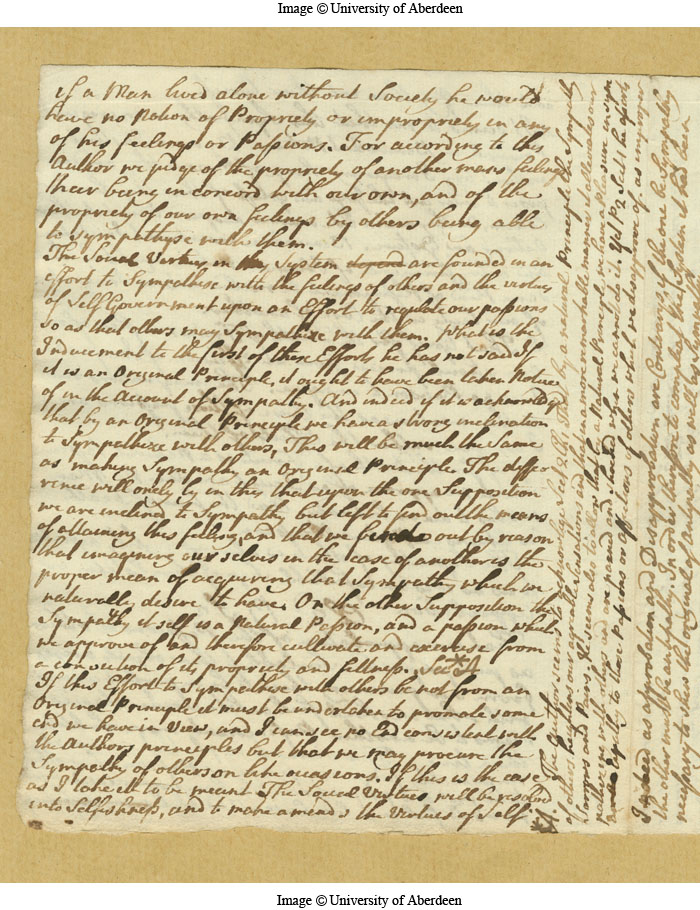 Image © University of Aberdeen
if a Man lived alone without Society he would
have no Notion of Propriety or impropriety in any
of his feelings or Passions. For according to this
Author we judge of the propriety of another mans feelings
their being in concord with our own, and of the
propriety of our own feelings by others being able
to sympathyse with them.
The Social Virtues in this System depend are founded in an
effort to Sympathise with the feelings of others and the virtues
of Self Government upon an Effort to regulate our passions
so as that others may Sympathize with them. What is the
Inducement to the first of these Efforts he has not said If
it is an Original Principle, it ought to have been taken Notice
of in the Account of Sympathy. And indeed if it is acknowledged
that by an Original Principle we have a strong inclination
to Sympathize with others, This will be much the Same
as making Sympathy an Original Principle. The differ
rence will onely ly in this that upon the one Supposition
we are inclined to Sympathy but left to find out the means
of attaining this feeling, and that we find out by reason
that imagining ourselves in the case of another is the
proper mean of acquiring that Sympathy which we
naturally desire to have. On the other Supposition the
Sympathy it self is a Natural Passion, and a passion which
we approve of and therefore cultivate and exercise from
a conviction of its propriety and fittness. See * A
If this Effort to Sympathise with others be not from an
Original Principle it must be undertaken to promote some
end we have in View, and I can see no End consistent with
the Authors principles but that we may procure the
Sympathy of others on like occasions. If this is the case
as I take it to be meant The Social Virtues will be resolved
into Selfishness, and to make amends the Virtues of Self
* A. The Author seems to Apprehend Sect 2 that by a natural Principle the Sympathy
of others heightens our agreable Sensations and that in a more remarkable manner it alleviates our
Sorrows and Pains, It seems also to follow that by a Natural Principle we have a Pleasure in sym
pathizing with others, and are pained and shocked when we cannot do it.
Sympathy to those Passions or affections of others which we disapprove of as improper
Indeed as approbation and Disapprobation are Contrary, if the one be Sympathy
the other must be antipathy. In order therefore to compleat this System it had been
necessary to shew
Image © University of Aberdeen